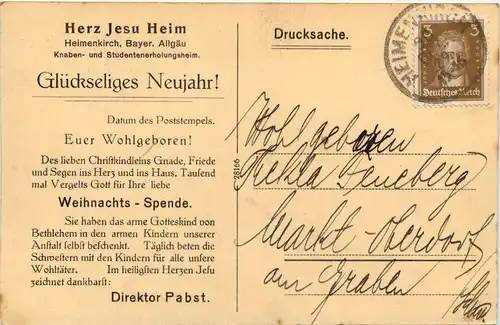 Herz Jesu Heim
Heimenkirch, Bayer. Allgäu
Knaben- und Studentenerholungsheim.
Glückseliges Neujahr!
Datum des Poststempels.
Euer Wohlgeboren!
Des lieben Christkindleins Gnade, Friede
und Segen ins Herz und ins Haus. Tausend
mal Vergelts Gott für Ihre liebe
Weihnachts - Spende.
Sie haben das arme Gotteskind von
Bethlehem in den armen Kindern unserer
Anstalt selbst beschenkt. Täglich beten die
Schwestern mit den Kindern für alle unsere
Wohltäter. Im heiligsten Herzen Jesu
zeichnet dankbarst:
Direktor Pabst.
28166
Drucksache.
3 3
Deutsches Reich
Wohlgeboren
Thekla
Markt-Oberdorf
am Graben